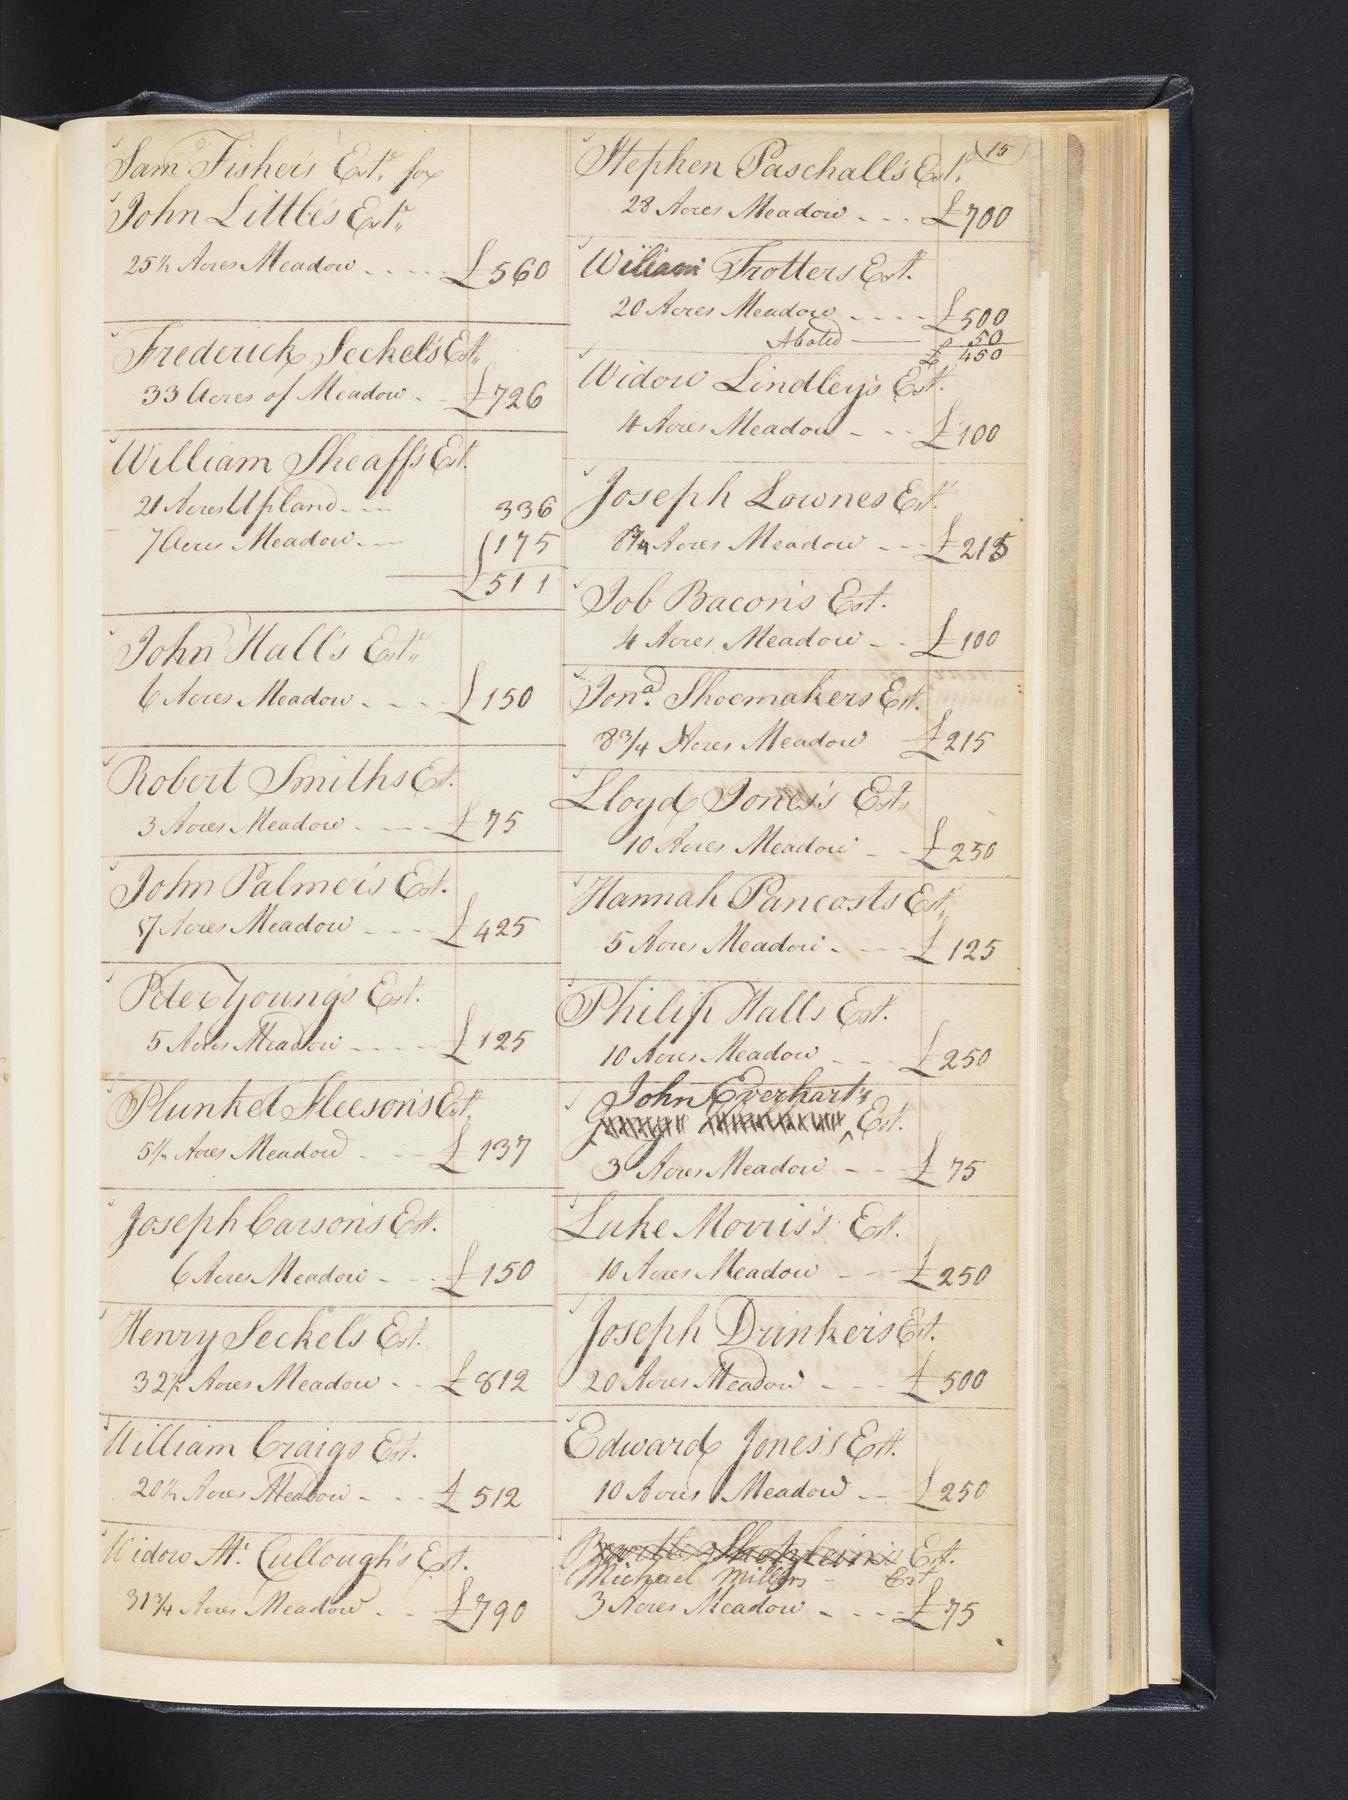 Sam Fisher's Est. for
John Little's Est.
25½ Acres Meadow .... £560
Frederick Seckel's Est.
33 Acres of Meadow . - £726
William Sheaff's Est.
21 Acres Upland ---- 336
7 Acres Meadow --- 175
£511
John Hall's Est.
6 Acres Meadow .... £150
Robert Smiths Est.
3 Acres Meadow .... £75
John Palmer's Est.
17 Acres Meadow .... £425
Peter Young's Est.
5 Acres Meadow .... £125
Plunket Fleeson's Est.
5½ Acres Meadow - -- £137
Joseph Carson's Est.
6 Acres Meadow - -- £150
Henry Seckel's Est.
32½ Acres Meadow - - £812
William Craigs Est.
20½ Acres Meadow - -- £512
Widow Mc. Cullough's Est.
31¾ Acres Meadow - - £790
15
Stephen Paschall's Est.
28 Acres Meadow --- £700
William Trotters Est.
20 Acres Meadow ---- £500
Abated —— 50
£ 450
Widow Lindley's Est.
4 Acres Meadow - -- £100
Joseph Lownes Est.
8¾ Acres Meadow - -- £215
Job Bacon's Est.
4 Acres Meadow -- - £100
Jona. Shoemakers Est.
8¾ Acres Meadow £215
Lloyd Jones's Est.
10 Acres Meadow - - £250
Hannah Pancosts Est.
5 Acres Meadow - -- £125
Philip Halls Est.
10 Acres Meadow - -- £250
John Everhart's
Est.
3 Acres Meadow - - £75
Luke Morris's Est.
10 Acres Meadow --- £250
Joseph Drinker's Est.
20 Acres Meadow - -- £500
Edward Jones's Est.
10 Acres Meadow -- £250
Est.
Michael Millers - Est
3 Acres Meadow - --- £75